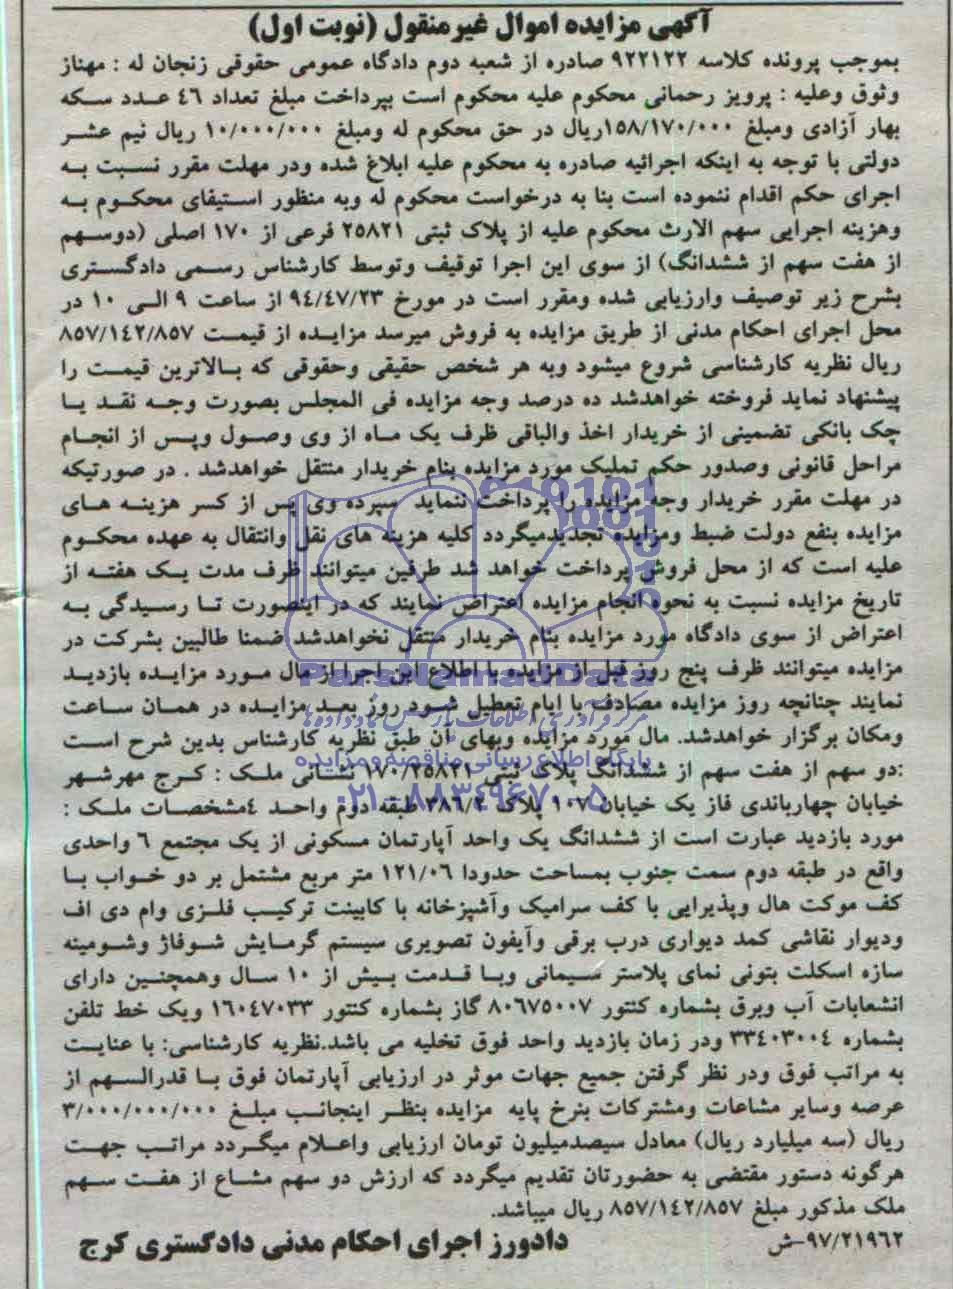 آگهی مزایده اموال غیرمنقول (نوبت اول)
بموجب پرونده کلاسه ۹۲۲۱۲۲ صادره از شعبه دوم دادگاه عمومی حقوقی زنجان له : مهناز
وثوق وعلیه : پرویز رحمانی محکوم علیه محکوم است بپرداخت مبلغ تعداد ٤٦ عدد سکه
بهار آزادی ومبلغ ۱۵۸/۱۷۰/۰۰۰ریال در حق محکوم له ومبلغ ۱۰/۰۰۰/۰۰۰ ریال نیم عشر
دولتی با توجه به اینکه اجرائیه صادره به محکوم علیه ابلاغ شده ودر مهلت مقرر نسبت به
اجرای حکم اقدام ننموده است بنا به درخواست محکوم له وبه منظور استیفای محکوم به
وهزینه اجرایی سهم الارث محکوم علیه از پلاک ثبتی ۲۵۸۲۱ فرعی از ۱۷۰ اصلی (دوسهم
از هفت سهم از ششدانگ) از سوی این اجرا توقیف وتوسط کارشناس رسمی دادگستری
بشرح زیر توصیف وارزیابی شده ومقرر است در مورخ ۹٤/٤۷/۲۳ از ساعت ۹ الی ۱۰ در
محل اجرای احکام مدنی از طریق مزایده به فروش میرسد مزایده از قیمت ۸۵۷/۱٤۲/۸۵۷
ریال نظریه کارشناسی شروع میشود وبه هر شخص حقیقی وحقوقی که بالاترین قیمت را
پیشنهاد نماید فروخته خواهدشد ده درصد وجه مزایده فی المجلس بصورت وجه نقد یا
چک بانکی تضمینی از خریدار اخذ والباقی ظرف یک ماه از وی وصول وپس از انجام
مراحل قانونی وصدور حکم تملیک مورد مزایده بنام خریدار منتقل خواهدشد . در صورتیکه
در مهلت مقرر خریدار وجه مزایده را پرداخت ننماید سپرده وی پس از کسر هزینه های
مزایده بنفع دولت ضبط ومزایده تجدیدمیگردد کلیه هزینه های نقل وانتقال به عهده محکوم
علیه است که از محل فروش پرداخت خواهد شد طرفین میتوانند ظرف مدت یک هفته از
تاریخ مزایده نسبت به نحوه انجام مزایده اعتراض نمایند که در اینصورت تا رسیدگی به
اعتراض از سوی دادگاه مورد مزایده بنام خریدار منتقل نخواهدشد ضمنا طالبین بشرکت در
مزایده میتوانند ظرف پنج روز قبل از مزایده با اطلاع این اجرا از مال مورد مزایده بازدید
نمایند چنانچه روز مزایده مصادف با ایام تعطیل شود روز بعد مزایده در همان ساعت
ومکان برگزار خواهدشد. مال مورد مزایده وبهای آن طبق نظریه کارشناس بدین شرح است
:دو سهم از هفت سهم از ششدانگ پلاک ثبتی ۱۷۰/۲۵۸۲۱ نشانی ملک : کرج مهرشهر
خیابان چهارباندی فاز یک خیابان ۱۰۷ پلاک ۳۸٦/۲ طبقه دوم واحد ٤مشخصات ملک :
مورد بازدید عبارت است از ششدانگ یک واحد آپارتمان مسکونی از یک مجتمع ٦ واحدی
واقع در طبقه دوم سمت جنوب بمساحت حدودا ۱۲۱/۰٦ متر مربع مشتمل بر دو خواب با
کف موکت هال وپذیرایی با کف سرامیک وآشپزخانه با کابینت ترکیب فلزی وام دی اف
ودیوار نقاشی کمد دیواری درب برقی وآیفون تصویری سیستم گرمایش شوفاژ وشومینه
سازه اسکلت بتونی نمای پلاستر سیمانی وبا قدمت بیش از ۱۰ سال وهمچنین دارای
انشعابات آب وبرق بشماره کنتور ۸۰٦۷۵۰۰۷ گاز بشماره کنتور ۱٦۰٤۷۰۳۳ ویک خط تلفن
بشماره ۳۳٤۰۳۰۰٤ ودر زمان بازدید واحد فوق تخلیه می باشد.نظریه کارشناسی: با عنایت
به مراتب فوق ودر نظر گرفتن جمیع جهات موثر در ارزیابی آپارتمان فوق با قدرالسهم از
عرصه وسایر مشاعات ومشترکات بنرخ پایه مزایده بنظر اینجانب مبلغ ۳/۰۰۰/۰۰۰/۰۰۰
ریال (سه میلیارد ریال) معادل سیصدمیلیون تومان ارزیابی واعلام میگردد مراتب جهت
هرگونه دستور مقتضی به حضورتان تقدیم میگردد که ارزش دو سهم مشاع از هفت سهم
ملک مذکور مبلغ ۸۵۷/۱٤۲/۸۵۷ ریال میباشد.
۹۷/۲۱۹٦۲-ش
دادورز اجرای احکام مدنی دادگستری کرج
ParsNamadData
مرکز فرآوری اطلاعات پارس نماد داده‌ها
پایگاه اطلاع رسانی مناقصه و مزایده
۰۲۱-۸۸۳۴۹۶۷۰-۵